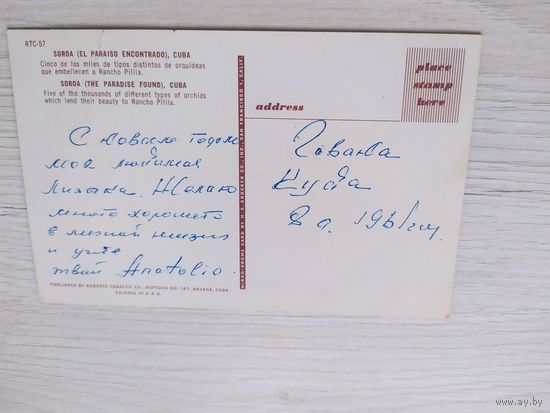 RTC-57
SOROA (EL PARAISO ENCONTRADO), CUBA
Cinco de los miles de tipos distintos de orquídeas
que embellecen a Rancho Pilila.
SOROA (THE PARADISE FOUND), CUBA
Five of the thousands of different types of orchids
which lend their beauty to Rancho Pilila.
С новым годом
моя любимая
Желаю
много хорошего
в личной жизни
и
твой Anatolio.
PUBLISHED BY ROBERTS TOBACCO CO., NEPTUNO NO. 167, HAVANA, CUBA
PRINTED IN U.S.A.
MIRRO-KROME CARD BY H. S. CROCKER CO., INC., SAN FRANCISCO 1, CALIF.
place
stamp
here
address
Гавана
Куба
www.ay.by